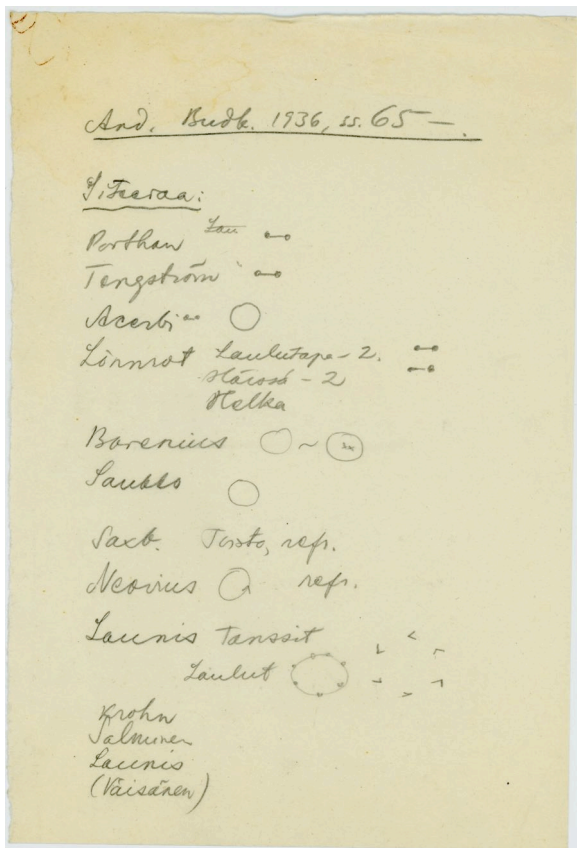 And. Budk. 1936, ss. 65 —.
Siteeraa:
Porthan Lau
Tengström
Acerbi
Lönnrot Laulutapa - 2.
Häissä - 2
Helka
Borenius ~
Saukko
Saxb. Toisto, refr.
Neovius refr.
Launis Tanssit
Laulut
Krohn
Salminen
Launis
(Väisänen)